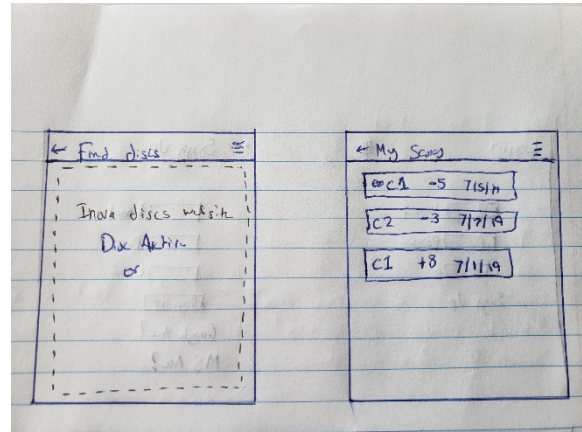 ← Find discs
Inova discs website
Disc
or
← My Scores
C1 -5 7/5/19
C2 -3 7/2/19
C1 +8 7/1/19